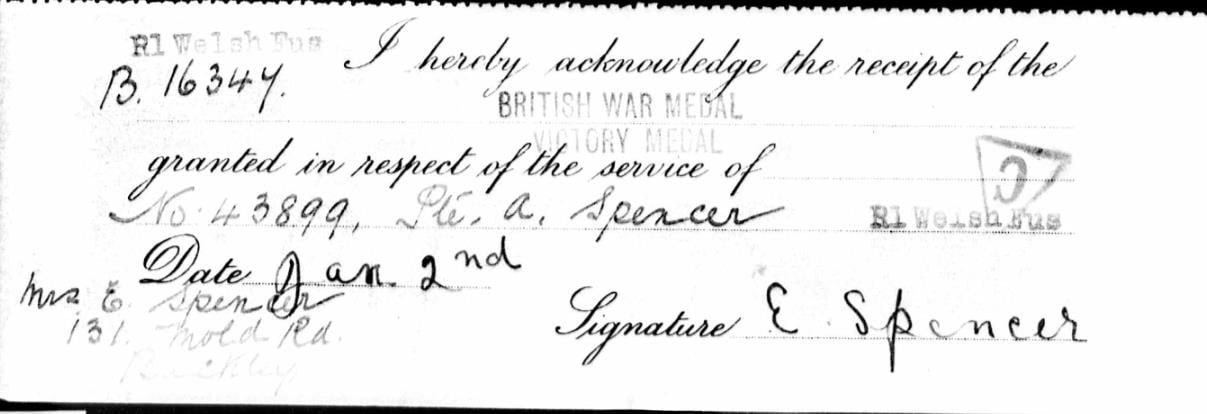 Rl Welsh Fus
I hereby acknowledge the receipt of the
B. 16347.
BRITISH WAR MEDAL
VICTORY MEDAL
granted in respect of the service of
No. 43899, Pte. A. Spencer
Rl Welsh Fus
Date Jan. 2nd
Mrs. E. Spencer
131. Mold Rd.
Buckley
Signature E. Spencer